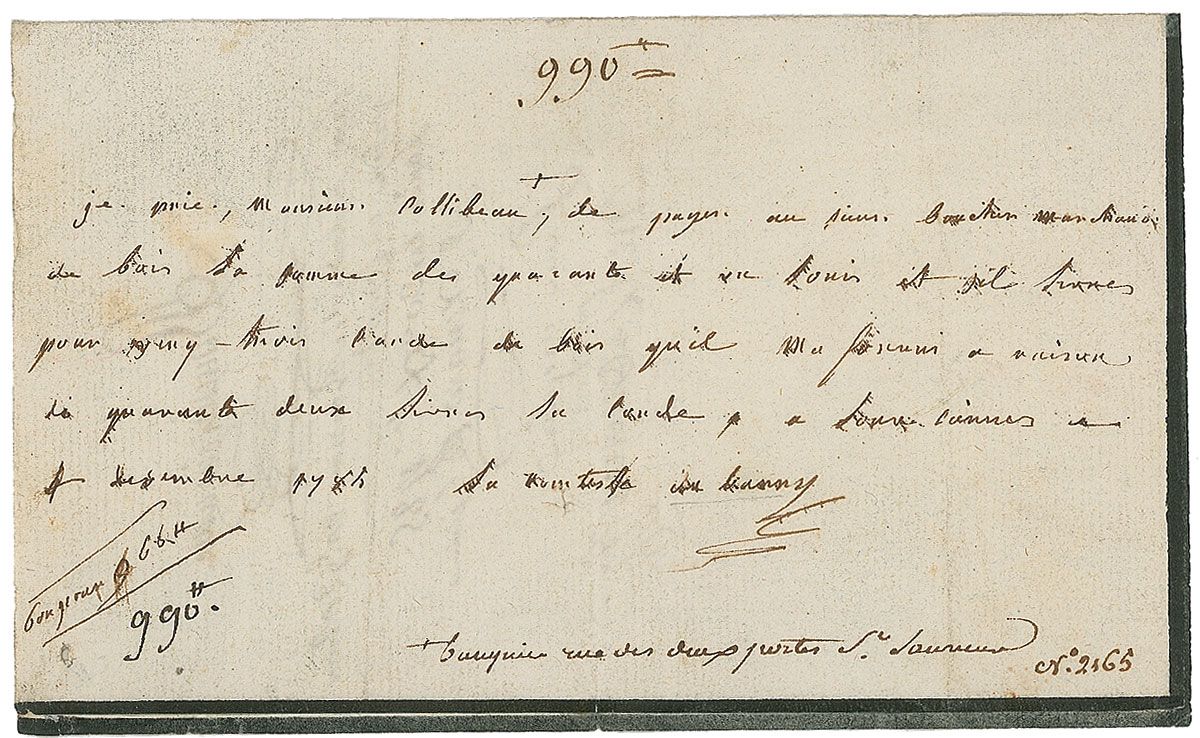 990 ₶
je prie, Monsieur Collibeau, de payer au sieur boucher marchand
de bois la somme des quarante et un louis et sis livres
pour ving-trois corde de bois quil ma fournis a raison
de quarante deux livres la corde, a louveciennes ce
4 desembre 1785 la comtesse du barry
66 ₶
990 ₶.
rue des deux portes St. Sauveur
No. 2165